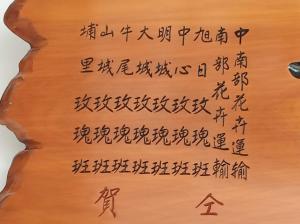 中南部花卉運輸
南部花卉運輸
旭日玫瑰班
中心玫瑰班
明城玫瑰班
大城玫瑰班
牛尾玫瑰班
山城玫瑰班
埔里玫瑰班
仝賀